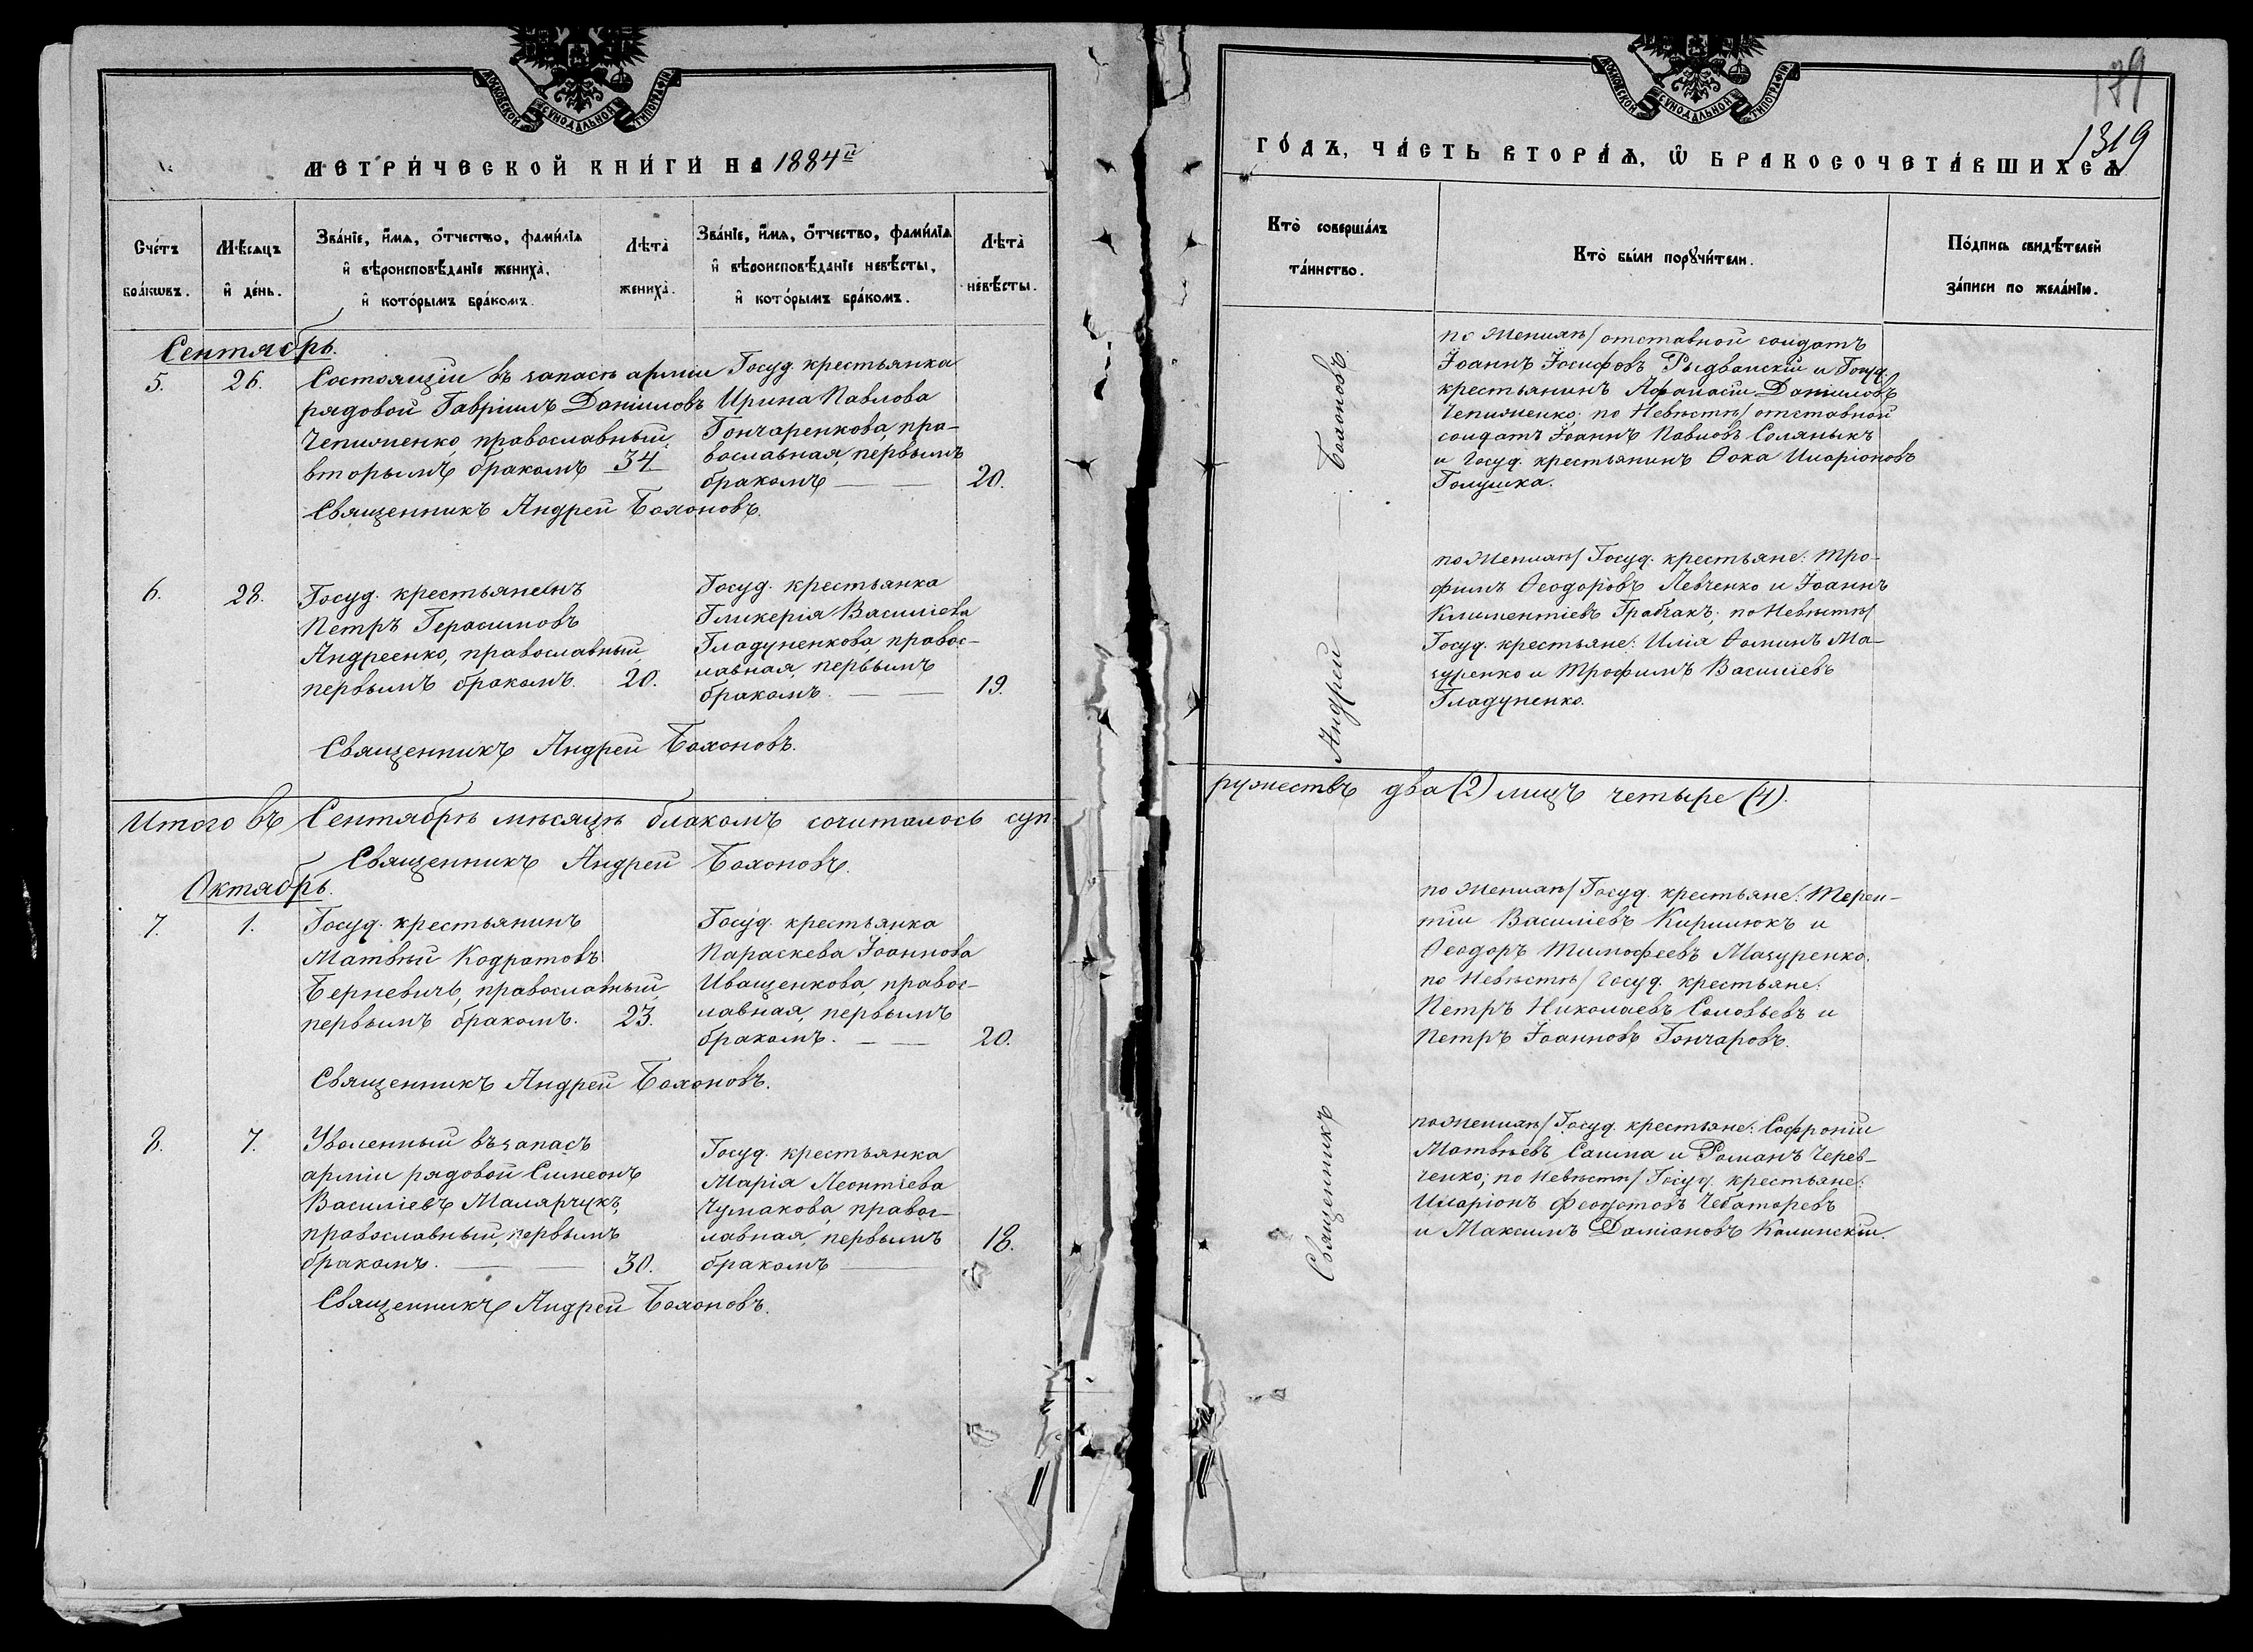 МОСКОВСКОЙ СѴНОДАЛЬНОЙ ТИПОГРАФІИ
МЕТРИ́ЧЕСКОЙ КНИ́ГИ НА 1884й
Сче́тъ бра́ковъ.
Мѣ́сяцъ и҆ де́нь.
Зва́нїе, и҆́мѧ, ѻ҆́тчество, фами́лїѧ
и҆ вѣроисповѣ́данїе жениха̀,
и҆ кото́рымъ бра́комъ.
Лѣта̀
жениха̀.
Зва́нїе, и҆́мѧ, ѻ҆́тчество, фами́лїѧ
и҆ вѣроисповѣ́данїе невѣ́сты,
и҆ кото́рымъ бра́комъ.
Лѣта̀
невѣ́сты.
Сентябрь.
5.
26.
Состоящій въ запасѣ арміи
рядовой Гавріилъ Даніиловъ
Чепиженко, православный,
вторымъ бракомъ 34
Госуд. крестьянка
Ирина Павлова
Гончаренкова, пра-
вославная, первымъ
бракомъ — — 20.
Священникъ Андрей Бохоновъ.
6.
28.
Госуд. крестьянинъ
Петръ Герасимовъ
Андреенко, православный,
первымъ бракомъ. 20.
Госуд. крестьянка
Гликерія Василіева
Гладуненкова, правос-
лавная, первымъ
бракомъ. — — 19.
Священникъ Андрей Бохоновъ.
Итого въ Сентябрѣ мѣсяцѣ бракомъ сочиталось суп-
Священникъ Андрей Бохоновъ.
Октябрь.
7.
1.
Госуд. крестьянинъ
Матвѣй Кодратовъ
Берневичъ, православный,
первымъ бракомъ. 23.
Госуд. крестьянка
Параскева Іоаннова
Иващенкова, правос-
лавная, первымъ
бракомъ. — — 20.
Священникъ Андрей Бохоновъ.
8.
7.
Уволенный въ запасъ
арміи рядовой Симеонъ
Василіевъ Малярчукъ,
православный, первымъ
бракомъ. — — 30.
Госуд. крестьянка
Марія Леонтіева
Чумакова, правос-
лавная, первымъ 18.
бракомъ —
Священникъ Андрей Бохоновъ.
МОСКОВСКОЙ СѴНОДАЛЬНОЙ ТИПОГРАФІИ
1319
ГО́ДЪ, ЧА́СТЬ ВТОРА́Ѧ, Ѡ҆ БРАКОСОЧЕТА́ВШИХСѦ
Кто̀ соверша́лъ
та́инство.
Кто̀ бы́ли порꙋчи́тели.
По́дпись свидѣ́телей
за́писи по жела́нїю.
Священникъ Андрей Бохоновъ.
по Женихѣ/ отставной солдатъ
Іоаннъ Іосифовъ Рыдванскій и Госуд.
крестьянинъ Афонасій Даніиловъ
Чепиженко; по Невѣстѣ/ отставной
солдатъ Іоаннъ Павловъ Соляныкъ
и Госуд. крестьянинъ Ѳока Иларіоновъ
Голушка.
по Женихѣ/ Госуд. крестьяне: Тро-
фимъ Ѳеодоровъ Левченко и Іоаннъ
Климентіевъ Грабчакъ; по Невѣстѣ/
Госуд. крестьяне: Илія Ѳоминъ Ма-
зуренко и Трофимъ Василіевъ
Гладуненко.
ружествъ два (2) лицъ четыре (4).
по Женихѣ/ Госуд. крестьяне: Терен-
тій Василіевъ Кирилюкъ и
Ѳеодоръ Тимофеевъ Мазуренко.
по Невѣстѣ/ Госуд. крестьяне:
Петръ Николаевъ Соловьевъ и
Петръ Іоанновъ Гончаровъ.
по Женихѣ/ Госуд. крестьяне: Софроній
Матвѣевъ Сашна и Романъ Черев-
ченко; по Невѣстѣ/ Госуд. крестьяне:
Иларіонъ Феодотовъ Чеботаревъ
и Максимъ Даміановъ Калинскій.